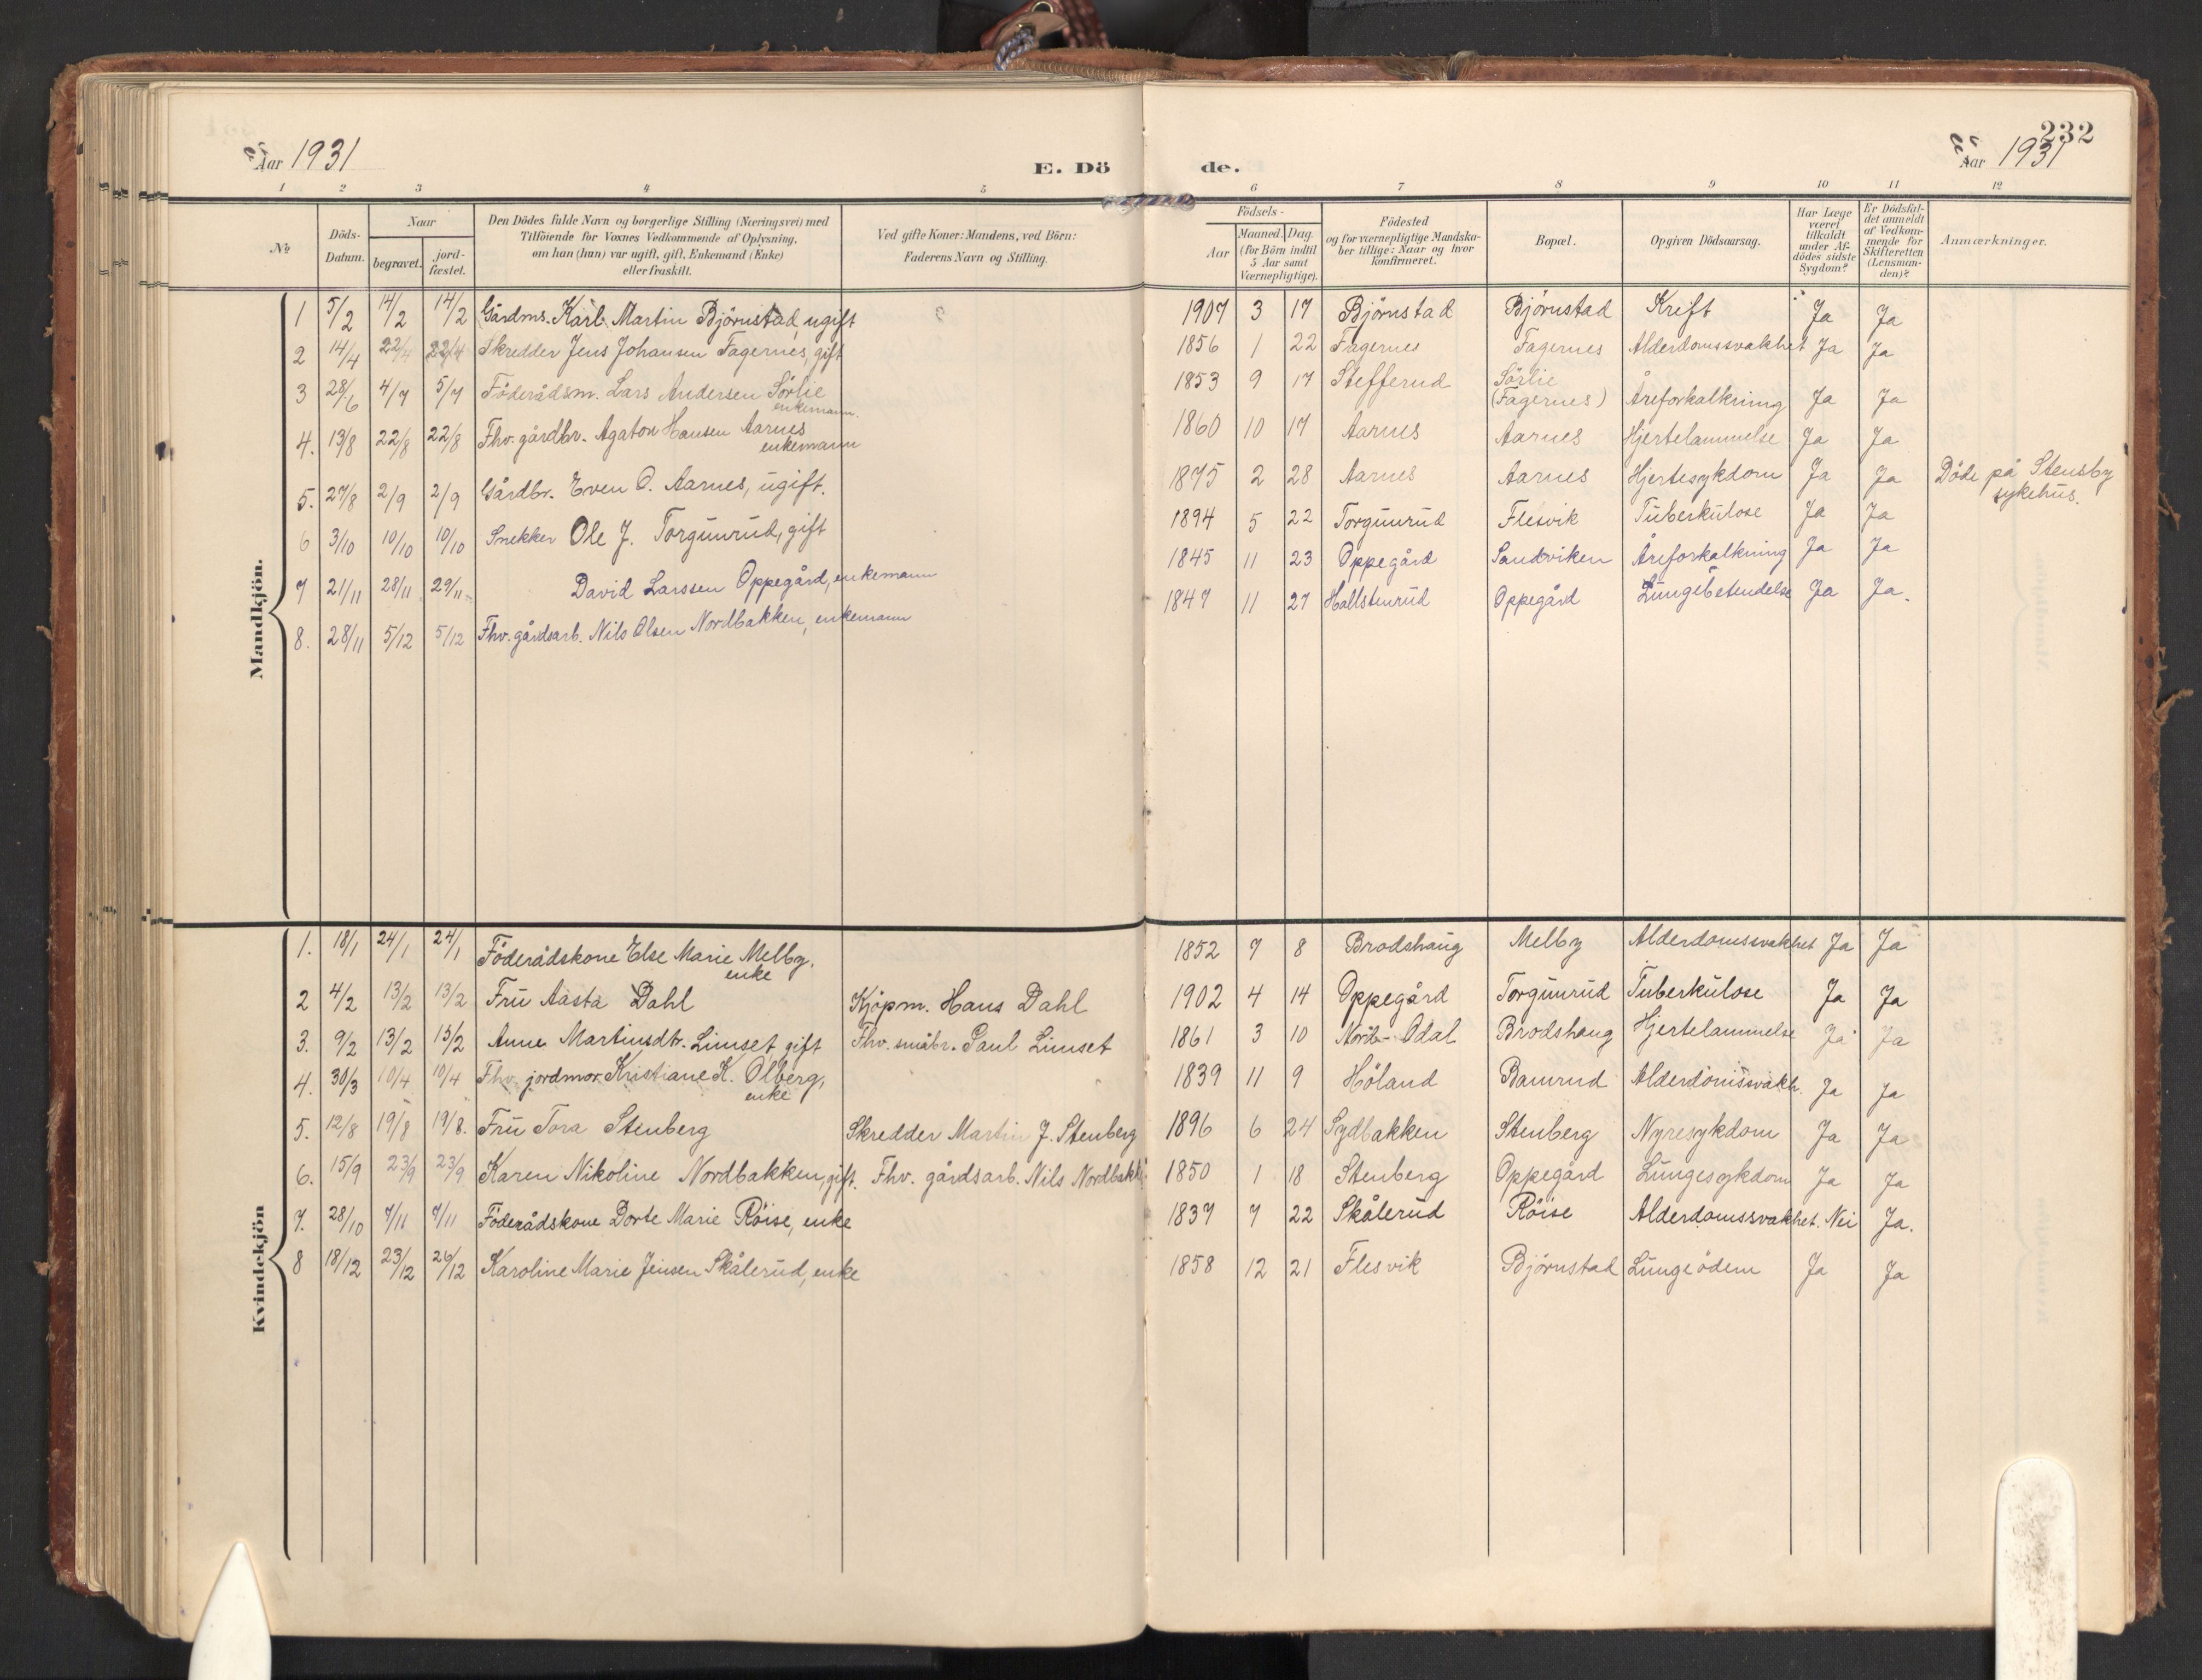 232
Aar 1931
E. Dö
de.
Aar 1931
1 2 3 4 5 6 7 8 9 10 11 12
№
Döds-Datum.
Naar
begravet.
jord-fæstet.
Den Dödes fulde Navn og borgerlige Stilling (Næringsvei) med
Tilföiende for Voxnes Vedkommende af Oplysning.
om han (hun) var ugift, gift, Enkemand (Enke)
eller fraskilt.
Ved gifte Koner: Mandens, ved Börn:
Faderens Navn og Stilling.
Födsels-
Aar
Maaned. Dag.
(for Börn indtil
5 Aar samt
Værnepligtige).
Födested
og for værnepligtige Mandska-
ber tillige: Naar og hvor
konfirmeret.
Bopæl.
Opgiven Dödsaarsag.
Har Læge
været
tilkaldt
under Af-
dödes sidste
Sygdom?
Er Dödsfal-
det anmeldt
af Vedkom-
mende for
Skifteretten
(Lensman-
den)?
Anmærkninger.
Mandkjön.
1 5/2 14/2 14/2 Gårdms. Karl Martin Björnstad, ugift 1907 3 17 Björnstad Björnstad Kreft Ja Ja
2 14/4 22/4 22/4 Skredder Jens Johansen Fagernes, gift 1856 1 22 Fagernes Fagernes Alderdomssvakhet Ja Ja
3 28/6 4/7 5/7 Föderådsm. Lars Andersen Sörlie enkemann. 1853 9 17 Stefferud Sörlie (Fagernes) Åreforkalkning Ja Ja
4. 13/8 22/8 22/8 Fhv. gårdbr. Agaton Hansen Aarnes enkemann 1860 10 17 Aarnes Aarnes Hjertelammelse Ja Ja
5. 27/8 2/9 2/9 Gårdbr. Even O. Aarnes, ugift. 1875 2 28 Aarnes Aarnes Hjertesykdom Ja Ja Döde på Stensby sykehus.
6 3/10 10/10 10/10 Snekker Ole J. Torgunrud, gift 1894 5 22 Torgunrud Flesvik Tuberkulose Ja Ja
7 21/11 28/11 29/11 David Larssen Oppegård, enkemann 1845 11 23 Oppegård Sandviken Åreforkalkning Ja Ja
8. 28/11 5/12 5/12 Fhv. gårdsarb. Nils Olsen Nordbakken, enkemann 1847 11 27 Hallstenrud Oppegård Lungebetendelse Ja Ja.
Kvindekjön
1. 18/1 24/1 24/1 Föderådskone Else Marie Melby. enke 1852 7 8 Brodshaug Melby Alderdomssvakhet Ja Ja
2 4/2 13/2 13/2 Fru Aasta Dahl Kjöpm. Hans Dahl 1902 4 14 Oppegård Torgunrud Tuberkulose Ja Ja
3. 9/2 13/2 15/2 Anne Martinsdtr. Linset gift Fhv. småbr. Paul Linset 1861 3 10 Nord-Odal Brodshaug Hjertelammelse Ja Ja
4. 30/3 10/4 10/4 Fhv. jordmor Kristiane K. Olberg, enke 1839 11 9 Höland Bamrud Alderdomssvakh. Ja Ja
5. 12/8 19/8 19/8. Fru Tora Stenberg Skredder Martin J. Stenberg 1896 6 24 Sydbakken Stenberg Nyresykdom Ja Ja
6. 15/9 23/9 23/9 Karen Nikoline Nordbakken, gift. Fhv. gårdsarb. Nils Nordbakk. 1850 1 18 Stenberg Oppegård Lungesykdom Ja Ja
7. 28/10 7/11 7/11 Föderådskone Dorte Marie Röise, enke 1837 7 22 Skålerud Röise Alderdomssvakhet. Nei Ja.
8 18/12 23/12 26/12 Karoline Marie Jensen Skålerud, enke 1858 12 21 Flesvik Björnstad Lungeödem Ja Ja